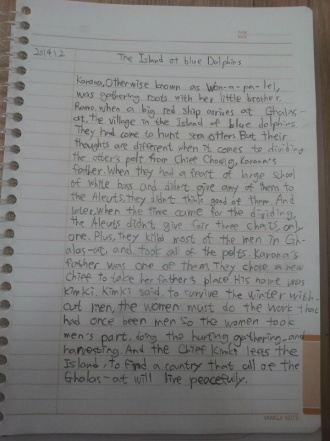 2014.1.2
The Island of blue Dolphins
Karana, Otherwise known as Won-a-pa-lei,
was gathering roots with her little brother
Ramo. when a big red ship arrives at Ghalas-
at, the village in the Island of blue dolphins
They had come to hunt sea otters But their
thoughts are different when it comes to dividing
the otter's pelt from Chief Chowig, Karana's
father. When they had a feast of large school
of White bass and didn't give any of them to
the Aleuts, they didn't think good of them. And
later, when the time come for the dividing,
the Aleuts didn't give fair three chests, only
one. Plus, they killed most of the men in Gh-
alas-at, and took all of the pelts. Karana's
father was one of them. They chose a new
Chief to take her father's place. His name was
Kimki. Kimki said, to survive the winter with-
out men, the women must do the work that
had once been men. So the women took
men's part, doing the hunting, gathering, and
harvesting. And the Chief Kimki leaves the
Island, to find a country that all of the
Ghalas-at will live peacefuly.